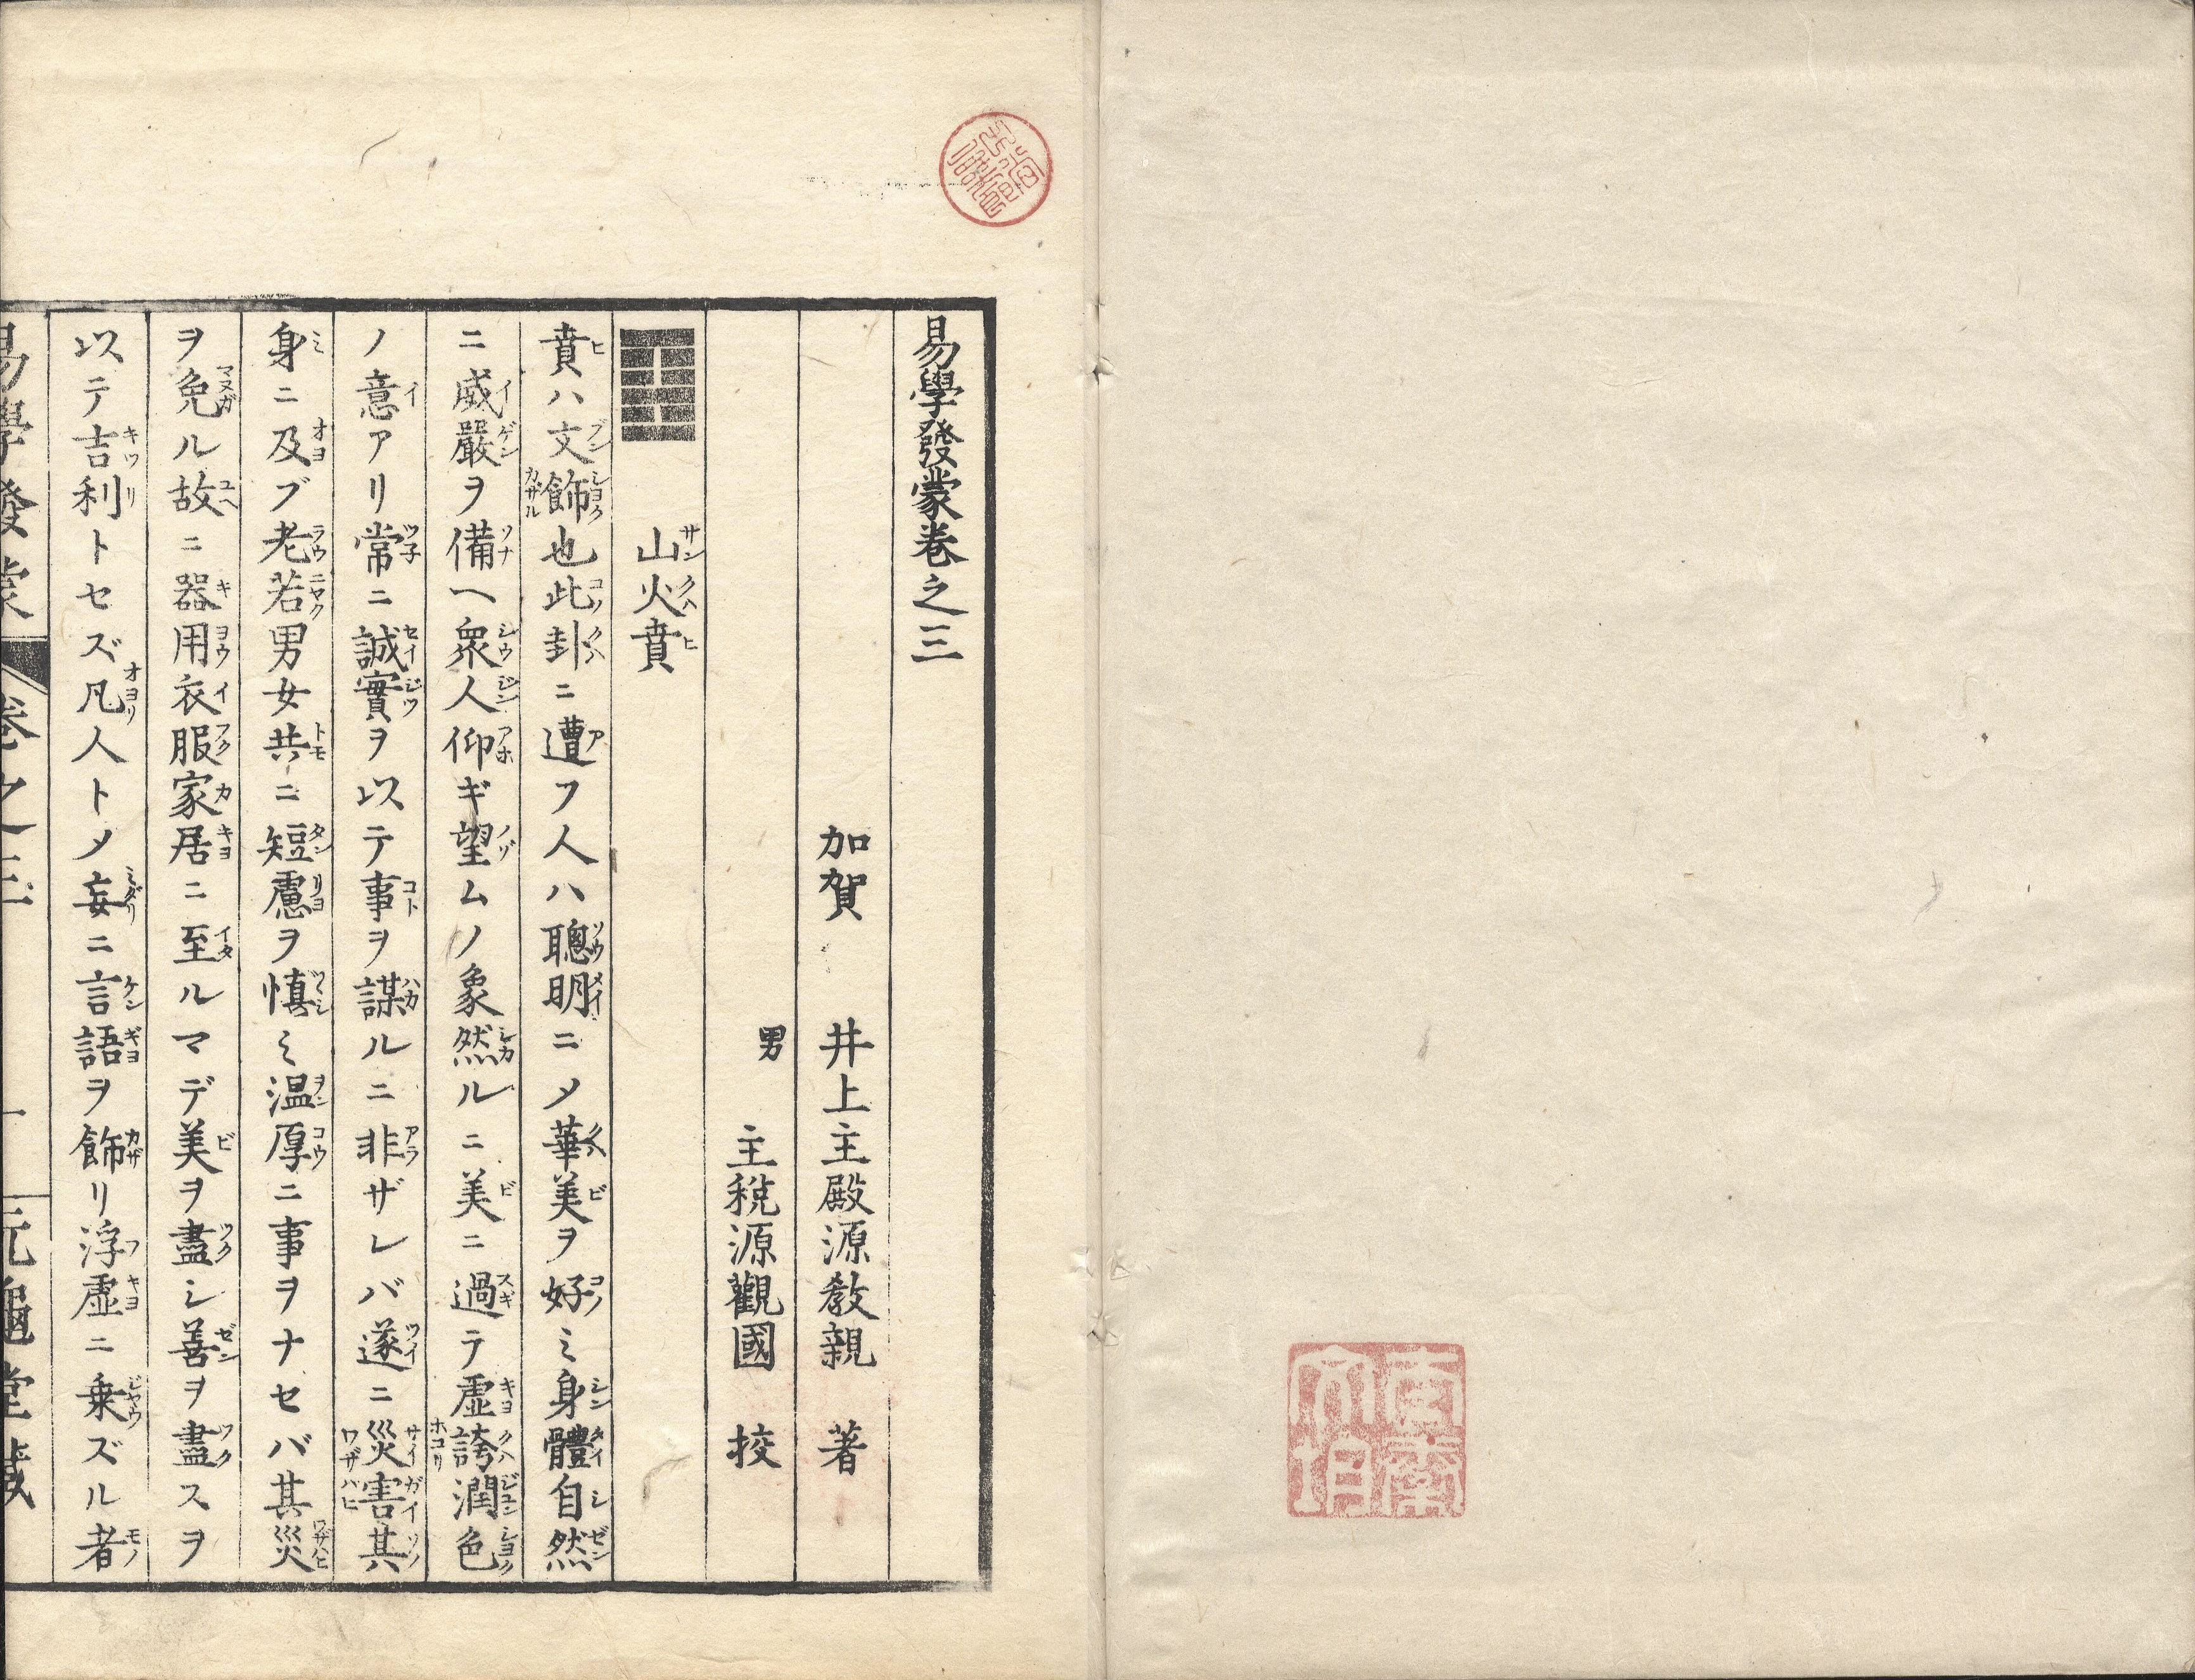 易學發蒙卷之三
加賀 井上主殿源教親 著
男 主稅源觀國 挍
山火賁
賁ハ文飾也此卦ニ遭フ人ハ聰明ニメ華美ヲ好ミ身體自然
ニ威嚴ヲ備ヘ衆人仰ギ望ムノ象然ルニ美ニ過テ虛誇潤色
ノ意アリ常ニ誠實ヲ以テ事ヲ謀ルニ非ザレバ遂ニ災害其
身ニ及ブ老若男女共ニ短慮ヲ慎ミ温厚ニ事ヲナセバ其災
ヲ免ル故ニ器用衣服家居ニ至ルマデ美ヲ盡シ善ヲ盡スヲ
以テ吉利トセズ凡人トメ妄ニ言語ヲ飾リ浮虛ニ乗ズル者
易學發蒙 卷之三 一 元龜堂藏